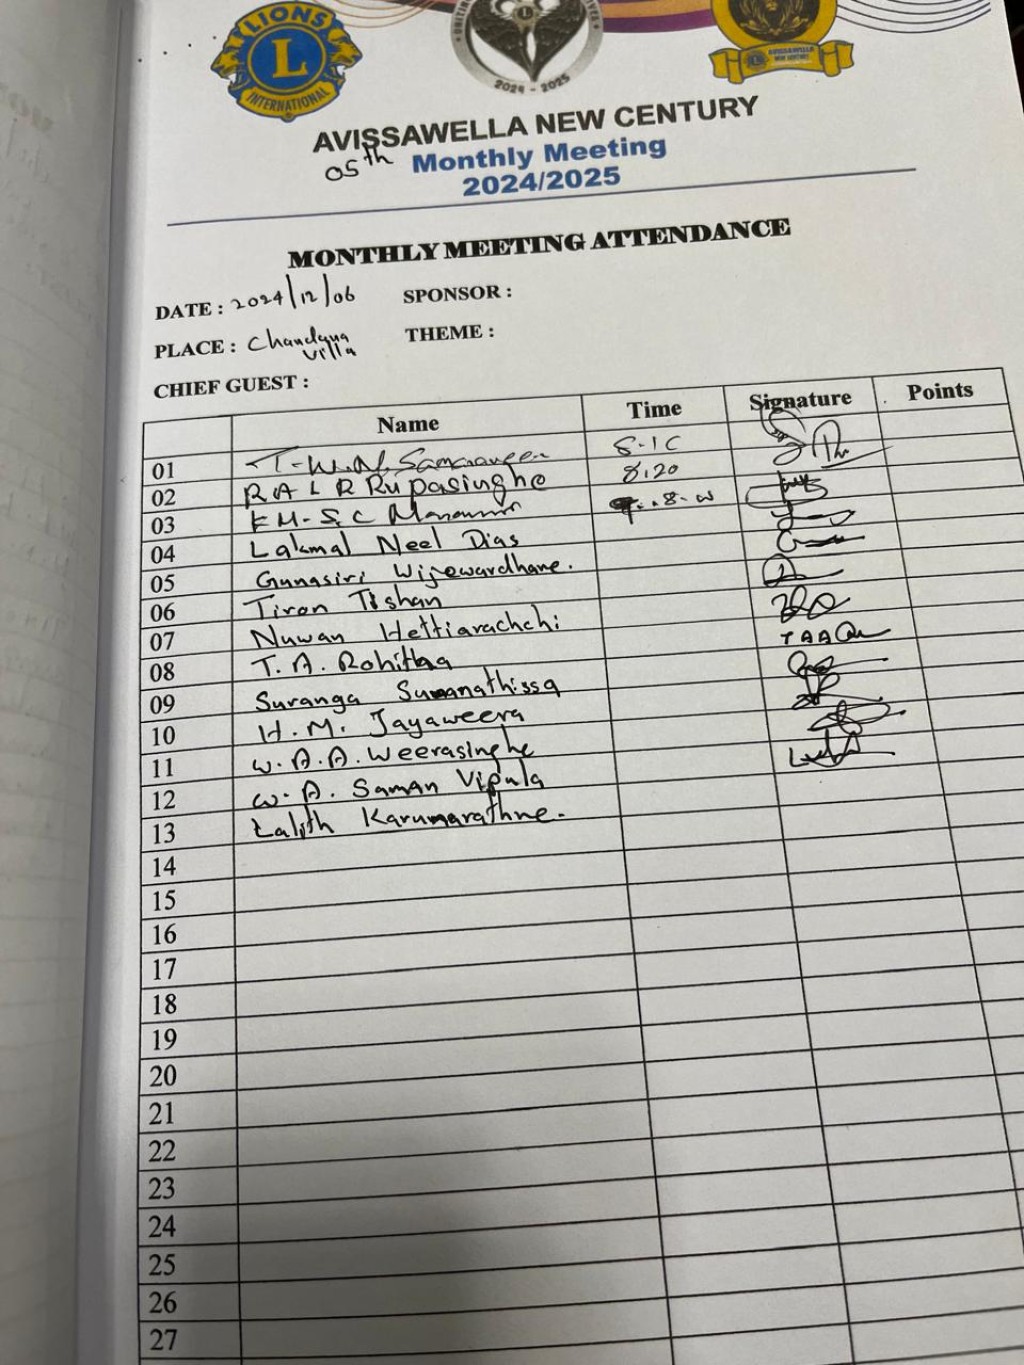 LIONS
L
INTERNATIONAL
2024 - 2025
AVISSAWELLA
NEW CENTURY
AVISSAWELLA NEW CENTURY
05th Monthly Meeting
2024/2025
MONTHLY MEETING ATTENDANCE
DATE : 2024/12/06 SPONSOR :
PLACE : Chandana villa THEME :
CHIEF GUEST :
Name Time Signature Points
01 T. W. N. 8.10
02 R A L R Rupasinghe 8.20
03 E M. S. C
04 Lakmal Neel Dias
05 Gunasiri Wijewardhane.
06 Tiron Tishan
07 Nuwan Hettiarachchi
08 T. A. Rohitha
09 Suranga Sumanathissa
10 H. M. Jayaweera
11 W. A. A. Weerasinghe
12 W. A. Saman Vipula
13 Lalith Karumarathne.
14
15
16
17
18
19
20
21
22
23
24
25
26
27